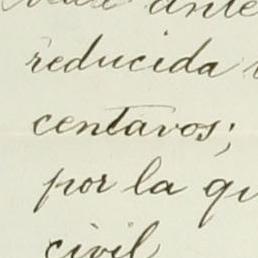 ante
reducida
centavos;
por la qu
civil